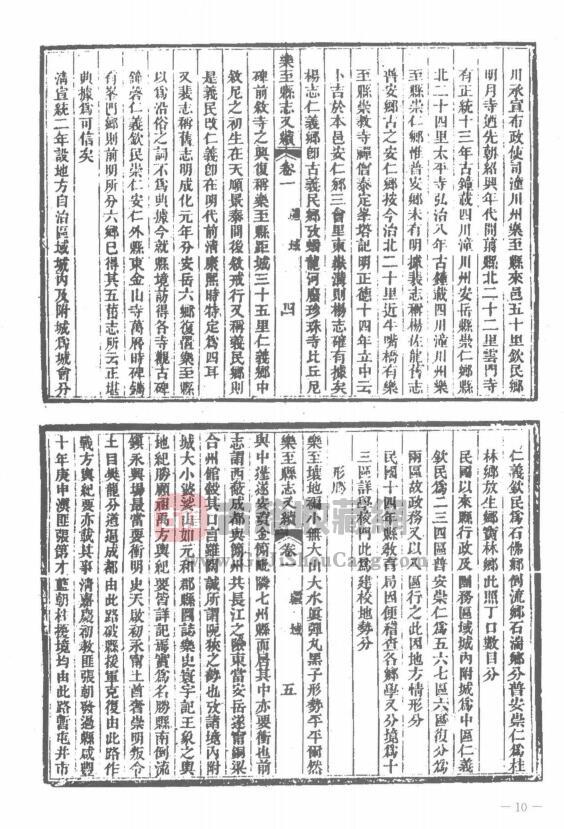 川承宣布政使司潼川州樂至縣來邑五十里欽民鄉
明月寺迺先朝紹興年代開剏縣北二十二里雲門寺
有正統十三年古鐘載四川潼川州安岳縣崇仁鄉縣
北二十四里太平寺弘治八年古鐘載四川潼川州樂
至縣崇仁鄉惟普安鄉未有明據裴志稱楊佐龍舊志
普安鄉古之安仁鄉按今治北二十里近牛嘴橋有樂
至縣崇教寺禪僧泰定峯塔記明正德十四年立中云
卜吉於本邑安仁鄉三會里東嶽溝則楊志確有據矣
楊志仁義鄉卽古義民鄉攷蟠龍河廢珍珠寺比丘尼
樂至縣志又續 卷一 疆域 四
碑前敘寺之興復稱樂至縣距城三十五里仁義鄉中
敘尼之初生在天順景泰間後敘戒行又稱義民鄉則
是義民改仁義卽在明代前清康熙時特定爲四耳
又裴志稱舊志明成化元年分安岳六鄉復置樂至縣
以爲沿俗之詞不爲典據今就縣境訪得各寺觀古碑
鐘磬仁義欽民崇仁安仁外縣東金山寺萬曆時碑鐫
有峯門鄉則前明所分六鄉已得其五舊志所云正堪
典據爲可信矣
清宣統二年設地方自治區域城內及附城爲城會分
仁義欽民爲石佛鄉倒流鄉石湍鄉分普安崇仁爲桂
林鄉放生鄉寶林鄉此照丁口數目分
民國以來縣行政及團務區域城內附城爲中區仁義
欽民爲二三四區普安崇仁爲五六七區六區復分爲
兩區故政務又以八區行之此因地方情形分
民國十四年縣教育局因便稽查各鄉學又分境爲十
三區詳學校門此爲建校地勢分
形勝
樂至壤地褊小無大山大水眞彈丸黑子形勢平平爾然
樂至縣志又續 卷一 疆域 五
與中遂蓬安資金簡毗隣七州縣而居其中亦要衝也前
志謂西蔽成都與簡州共長江之險東當安岳遂甯銅梁
合州館轂其口言雖閎誠所謂阸狹之勢也攷諸境內附
城大小婆娑山如元和郡縣圖誌樂史寰宇記王象之輿
地紀勝顧祖禹方輿紀要皆詳記焉實爲名勝縣南倒流
鎮永興場最當要衝明史天啟初永甯土酋奢崇明叛令
土目樊龍分道逼成都由此路破縣援軍克復由此路作
戰方輿紀要亦載其事清嘉慶初教匪張朝發過縣咸豐
十年庚申滇匪張第才藍朝柱擾境均由此路暫屯井市
— 10 —